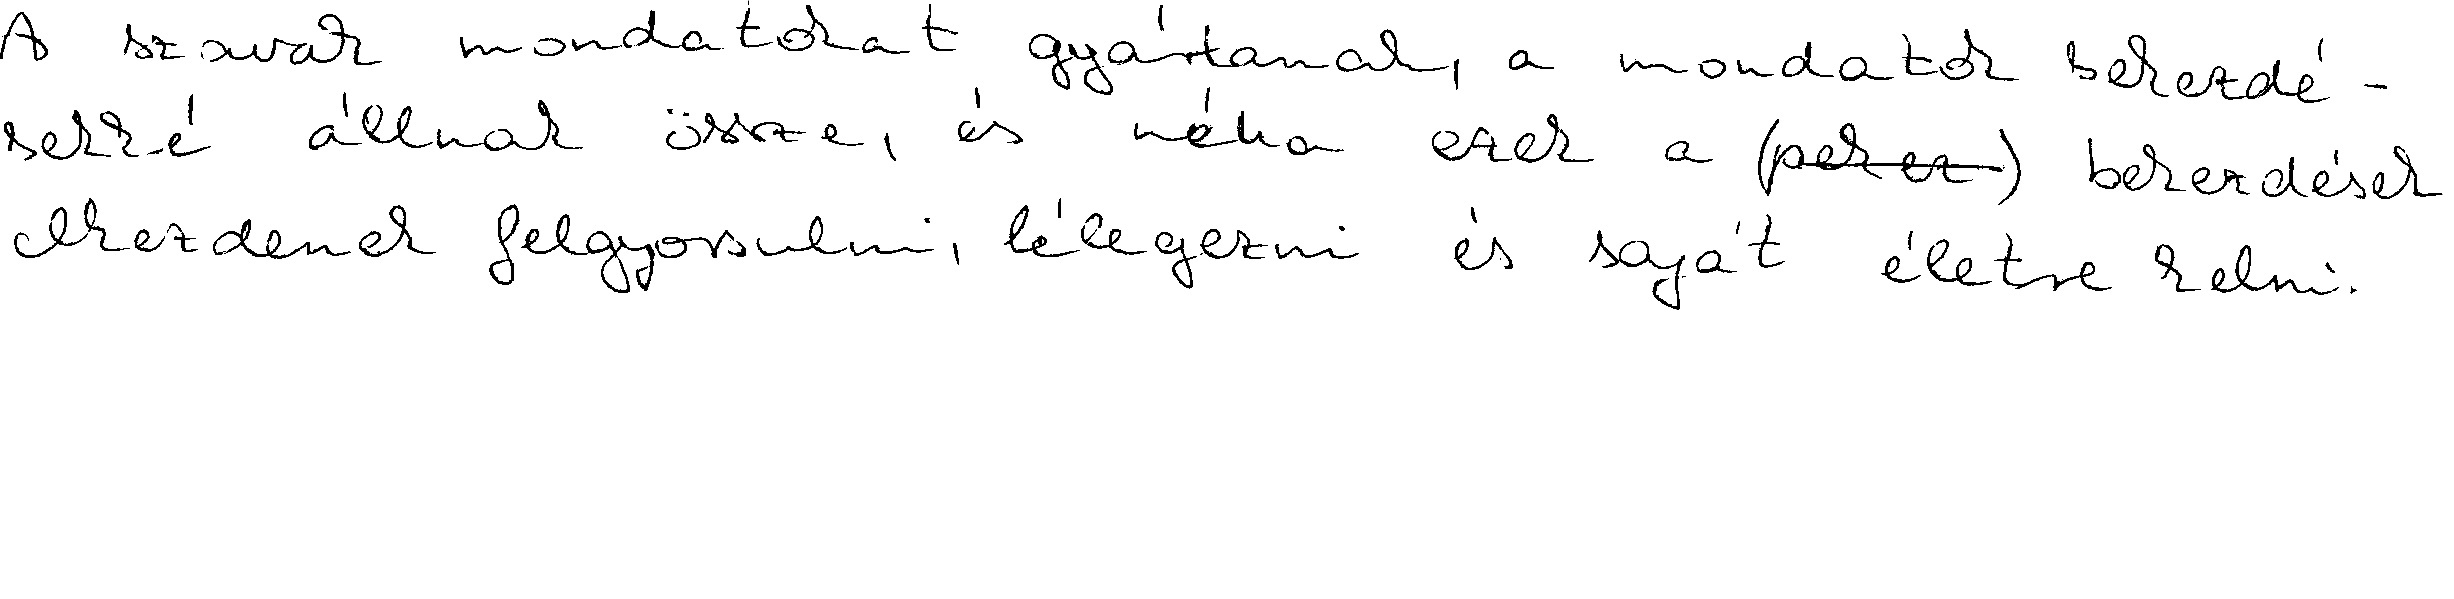 A szavak mondatokat gyártanak, a mondatok bekezdé-
sekké állnak össze, és néha ezek a bekezdések
elkezdenek felgyorsulni, lélegezni és saját életre kelni.